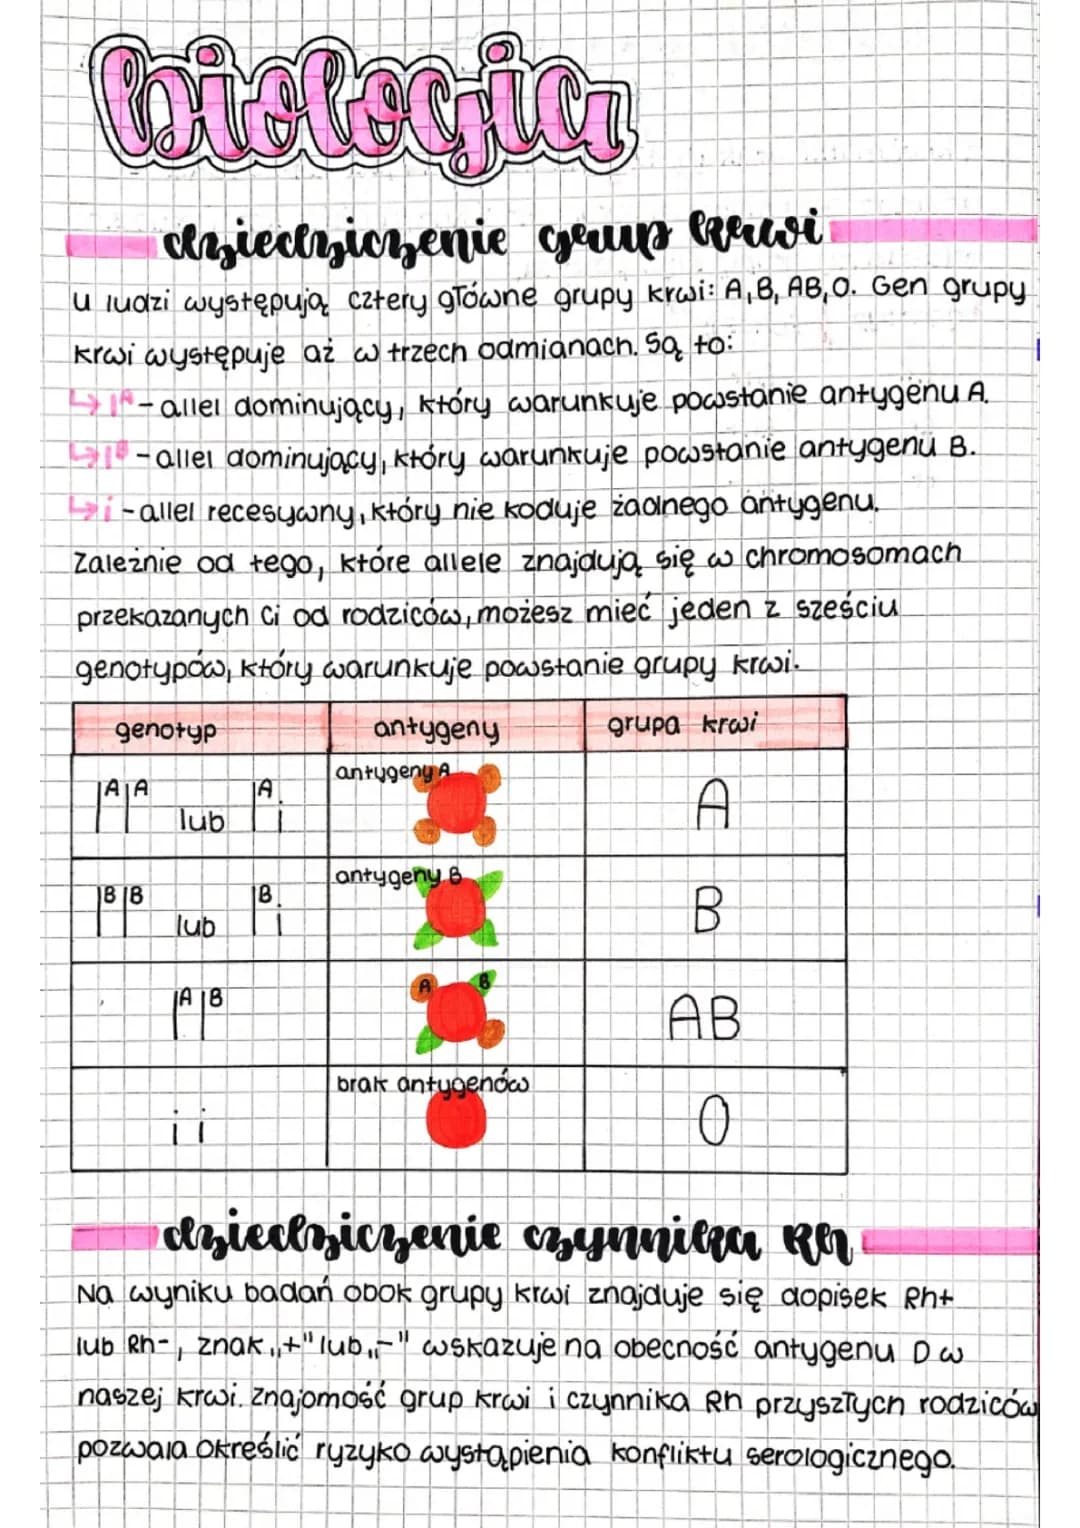 biologia
dziedziczenie grup krwi
u ludzi występują cztery główne grupy krwi: A, B, AB, O. Gen grupy
krwi występuje aż w trzech odmianach. Są to:
↳ Iᴬ - allel dominujący, który warunkuje powstanie antygenu A.
↳ Iᴮ - allel dominujący, który warunkuje powstanie antygenu B.
↳ i - allel recesywny, który nie koduje żadnego antygenu.
Zależnie od tego, które allele znajdują się w chromosomach
przekazanych Ci od rodziców, możesz mieć jeden z sześciu
genotypów, który warunkuje powstanie grupy krwi.
genotyp antygeny grupa krwi
antygeny A
Iᴬ Iᴬ lub Iᴬ i A
antygeny B
Iᴮ Iᴮ lub Iᴮ i B
Iᴬ Iᴮ A B AB
brak antygenów
i i O
dziedziczenie czynnika Rh
Na wyniku badań obok grupy krwi znajduje się dopisek Rh+
lub Rh-, znak „+" lub „-" wskazuje na obecność antygenu D w
naszej krwi. Znajomość grup krwi i czynnika Rh przyszłych rodziców
pozwala określić ryzyko wystąpienia konfliktu serologicznego.